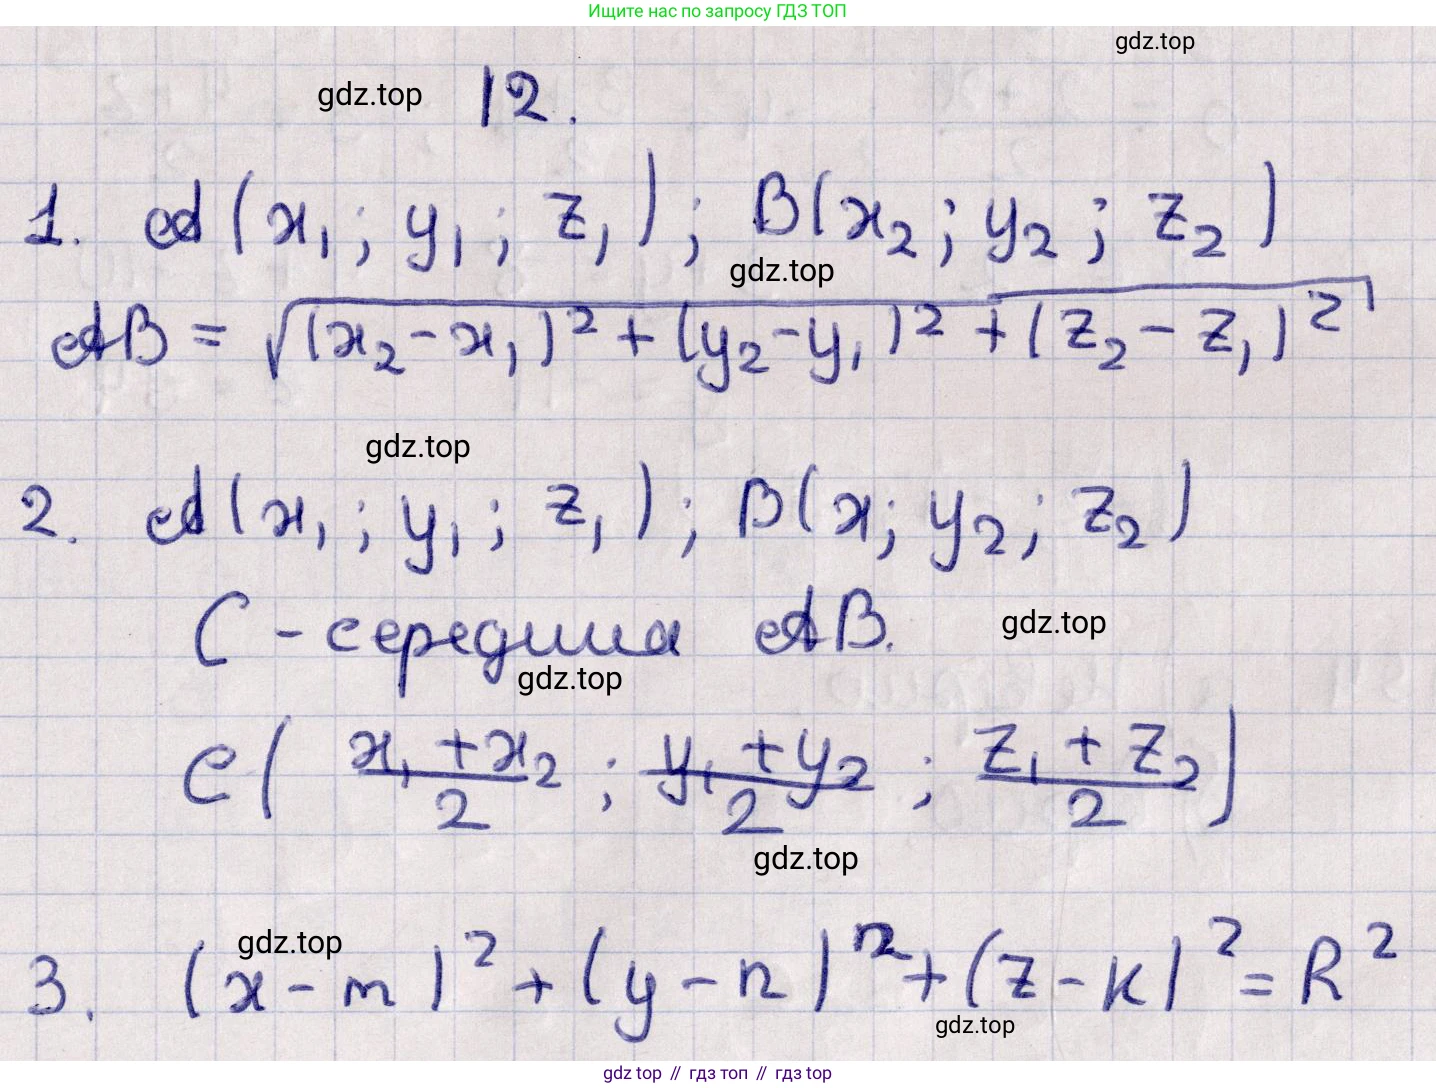 Ищите нас по запросу ГДЗ ТОП
gdz.top
gdz.top 12.
1. A(x₁; y₁; z₁); B(x₂; y₂; z₂)
gdz.top
AB = √((x₂-x₁)² + (y₂-y₁)² + (z₂-z₁)²)
gdz.top
2. A(x₁; y₁; z₁); B(x; y₂; z₂)
C - середина AB.
gdz.top
gdz.top
C((x₁+x₂)/2; (y₁+y₂)/2; (z₁+z₂)/2)
gdz.top
gdz.top
3. (x-m)² + (y-n)² + (z-k)² = R²
gdz.top
gdz top // гдз топ // гдз top